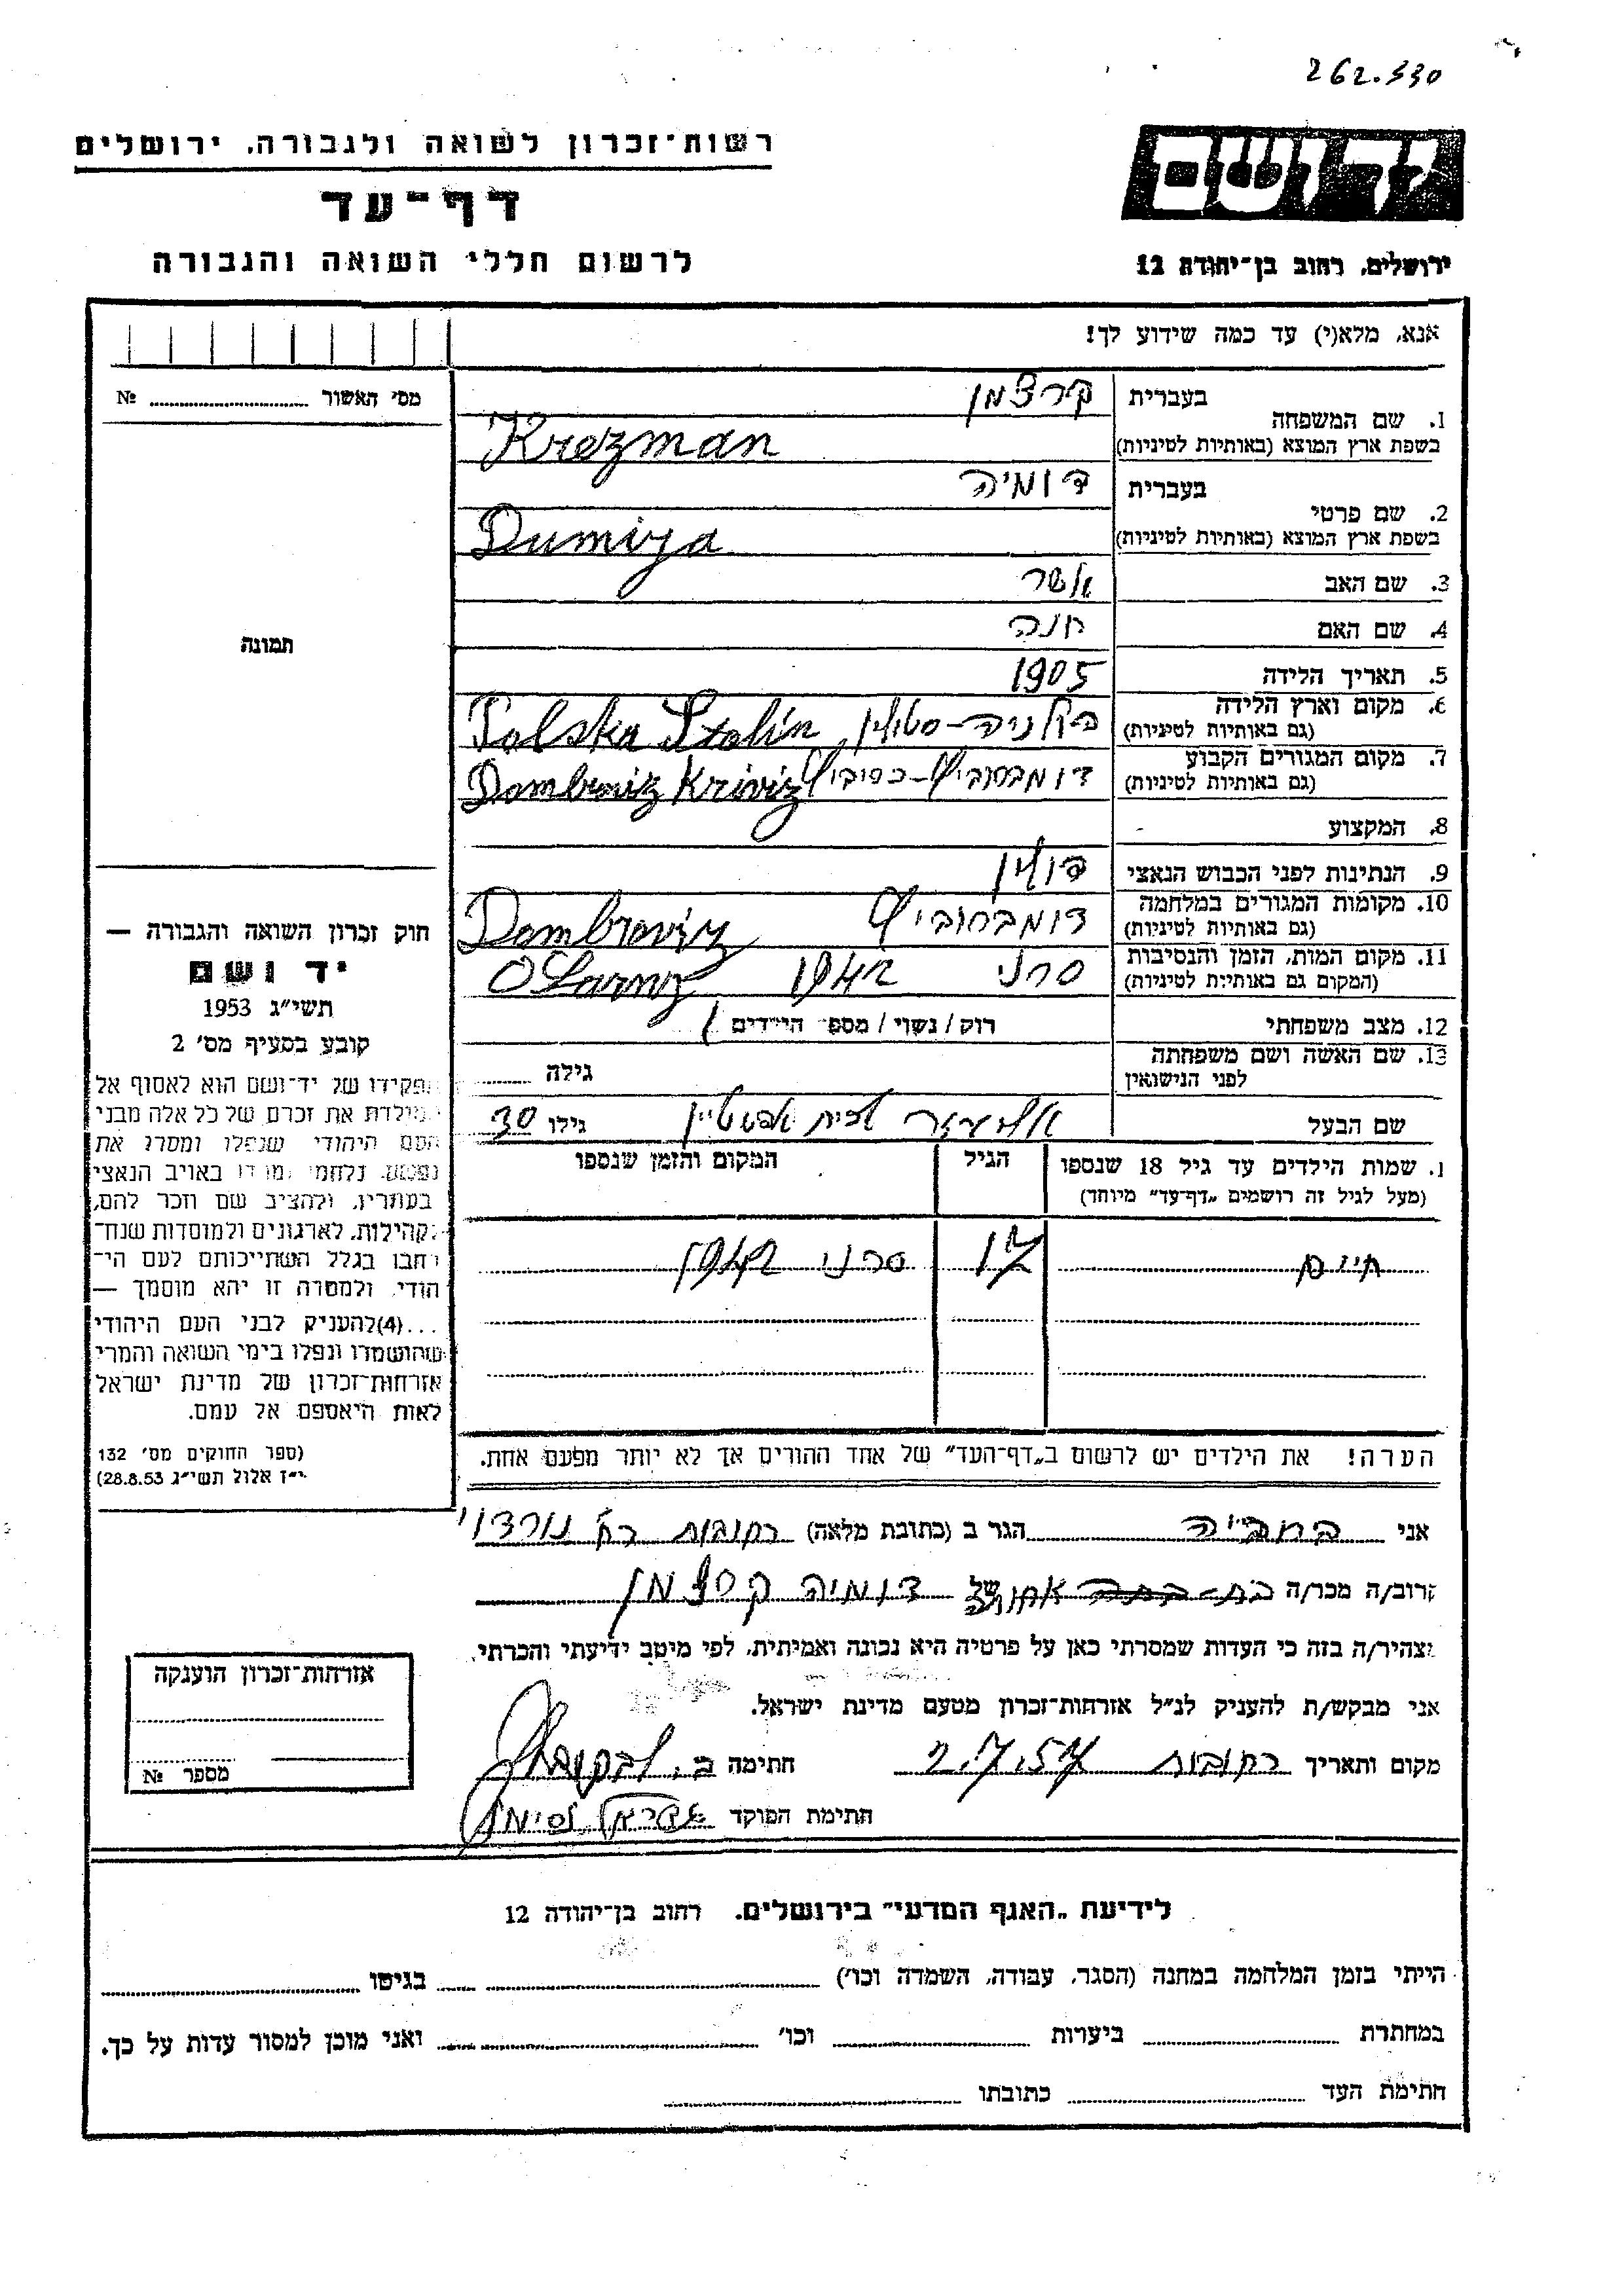 262.330
רשות־זכרון לשואה ולגבורה, ירושלים
דף־עד
לרשום חללי השואה והגבורה
ידושם
ירושלים, רחוב בן־יהודה 12
אנא, מלא(י) עד כמה שידוע לך!
מס׳ האשור № 
1. שם המשפחה
בעברית קרצמן
בשפת ארץ המוצא (באותיות לטיניות) Krezman
2. שם פרטי
בעברית דומיה
בשפת ארץ המוצא (באותיות לטיניות) Dumiya
3. שם האב אשר
4. שם האם חנה
5. תאריך הלידה 1905
6. מקום וארץ הלידה
(גם באותיות לטיניות) סטולין Polska Stolin
7. מקום המגורים הקבוע
(גם באותיות לטיניות) Dombroviz Kriviz
8. המקצוע -
9. הנתינות לפני הכבוש הנאצי פולין
10. מקומות המגורים במלחמה
(גם באותיות לטיניות) דומברוביץ Dombroviz
11. מקום המות, הזמן והנסיבות
(המקום גם באותיות לטיניות) סרני 1942
12. מצב משפחתי רוק / נשוי / מספ׳ הילדים 1
13. שם האשה ושם משפחתה
לפני הנישואין גילה
שם הבעל אליעזר גילו 30
תמונה
חוק זכרון השואה והגבורה —
יד ושם
תשי״ג 1953
קובע בסעיף מס׳ 2
תפקידו של יד־ושם הוא לאסוף אל
המולדת את זכרם של כל אלה מבני
העם היהודי שנפלו ומסרו את
נפשם, נלחמו ומרדו באויב הנאצי
בעוזריו, ולהציב שם וזכר להם,
לקהילות, לארגונים ולמוסדות שנח־
רבו בגלל השתייכותם לעם הי־
הודי, ולמטרה זו יהא מוסמך —
...(4)להעניק לבני העם היהודי
שהושמדו ונפלו בימי השואה והמרי
אזרחות־זכרון של מדינת ישראל
לאות היאספם אל עמם.
(ספר החוקים מס׳ 132
י״ז אלול תשי״ג 28.8.53)
ו. שמות הילדים עד גיל 18 שנספו הגיל המקום והזמן שנספו
(מעל לגיל זה רושמים „דף־עד״ מיוחד)
חיים 12 סרני 1942
הערה! את הילדים יש לרשום ב„דף־העד״ של אחד ההורים אך לא יותר מפעם אחת.
אני הגר ב (כתובת מלאה) רחובות רח׳ נורדוי
קרוב/ה מכר/ה של דומיה קרצמן
מצהיר/ה בזה כי העדות שמסרתי כאן על פרטיה היא נכונה ואמיתית, לפי מיטב ידיעתי והכרתי.
אני מבקש/ת להעניק לנ״ל אזרחות־זכרון מטעם מדינת ישראל.
מקום ותאריך רחובות 2.7.57 חתימה
חתימת הפוקד
אזרחות־זכרון הוענקה
מספר №
לידיעת „האגף המדעי״ בירושלים, רחוב בן־יהודה 12
הייתי בזמן המלחמה במחנה (הסגר, עבודה, השמדה וכו׳) בגיטו
במחתרת ביערות וכו׳ ואני מוכן למסור עדות על כך.
חתימת העד כתובתו